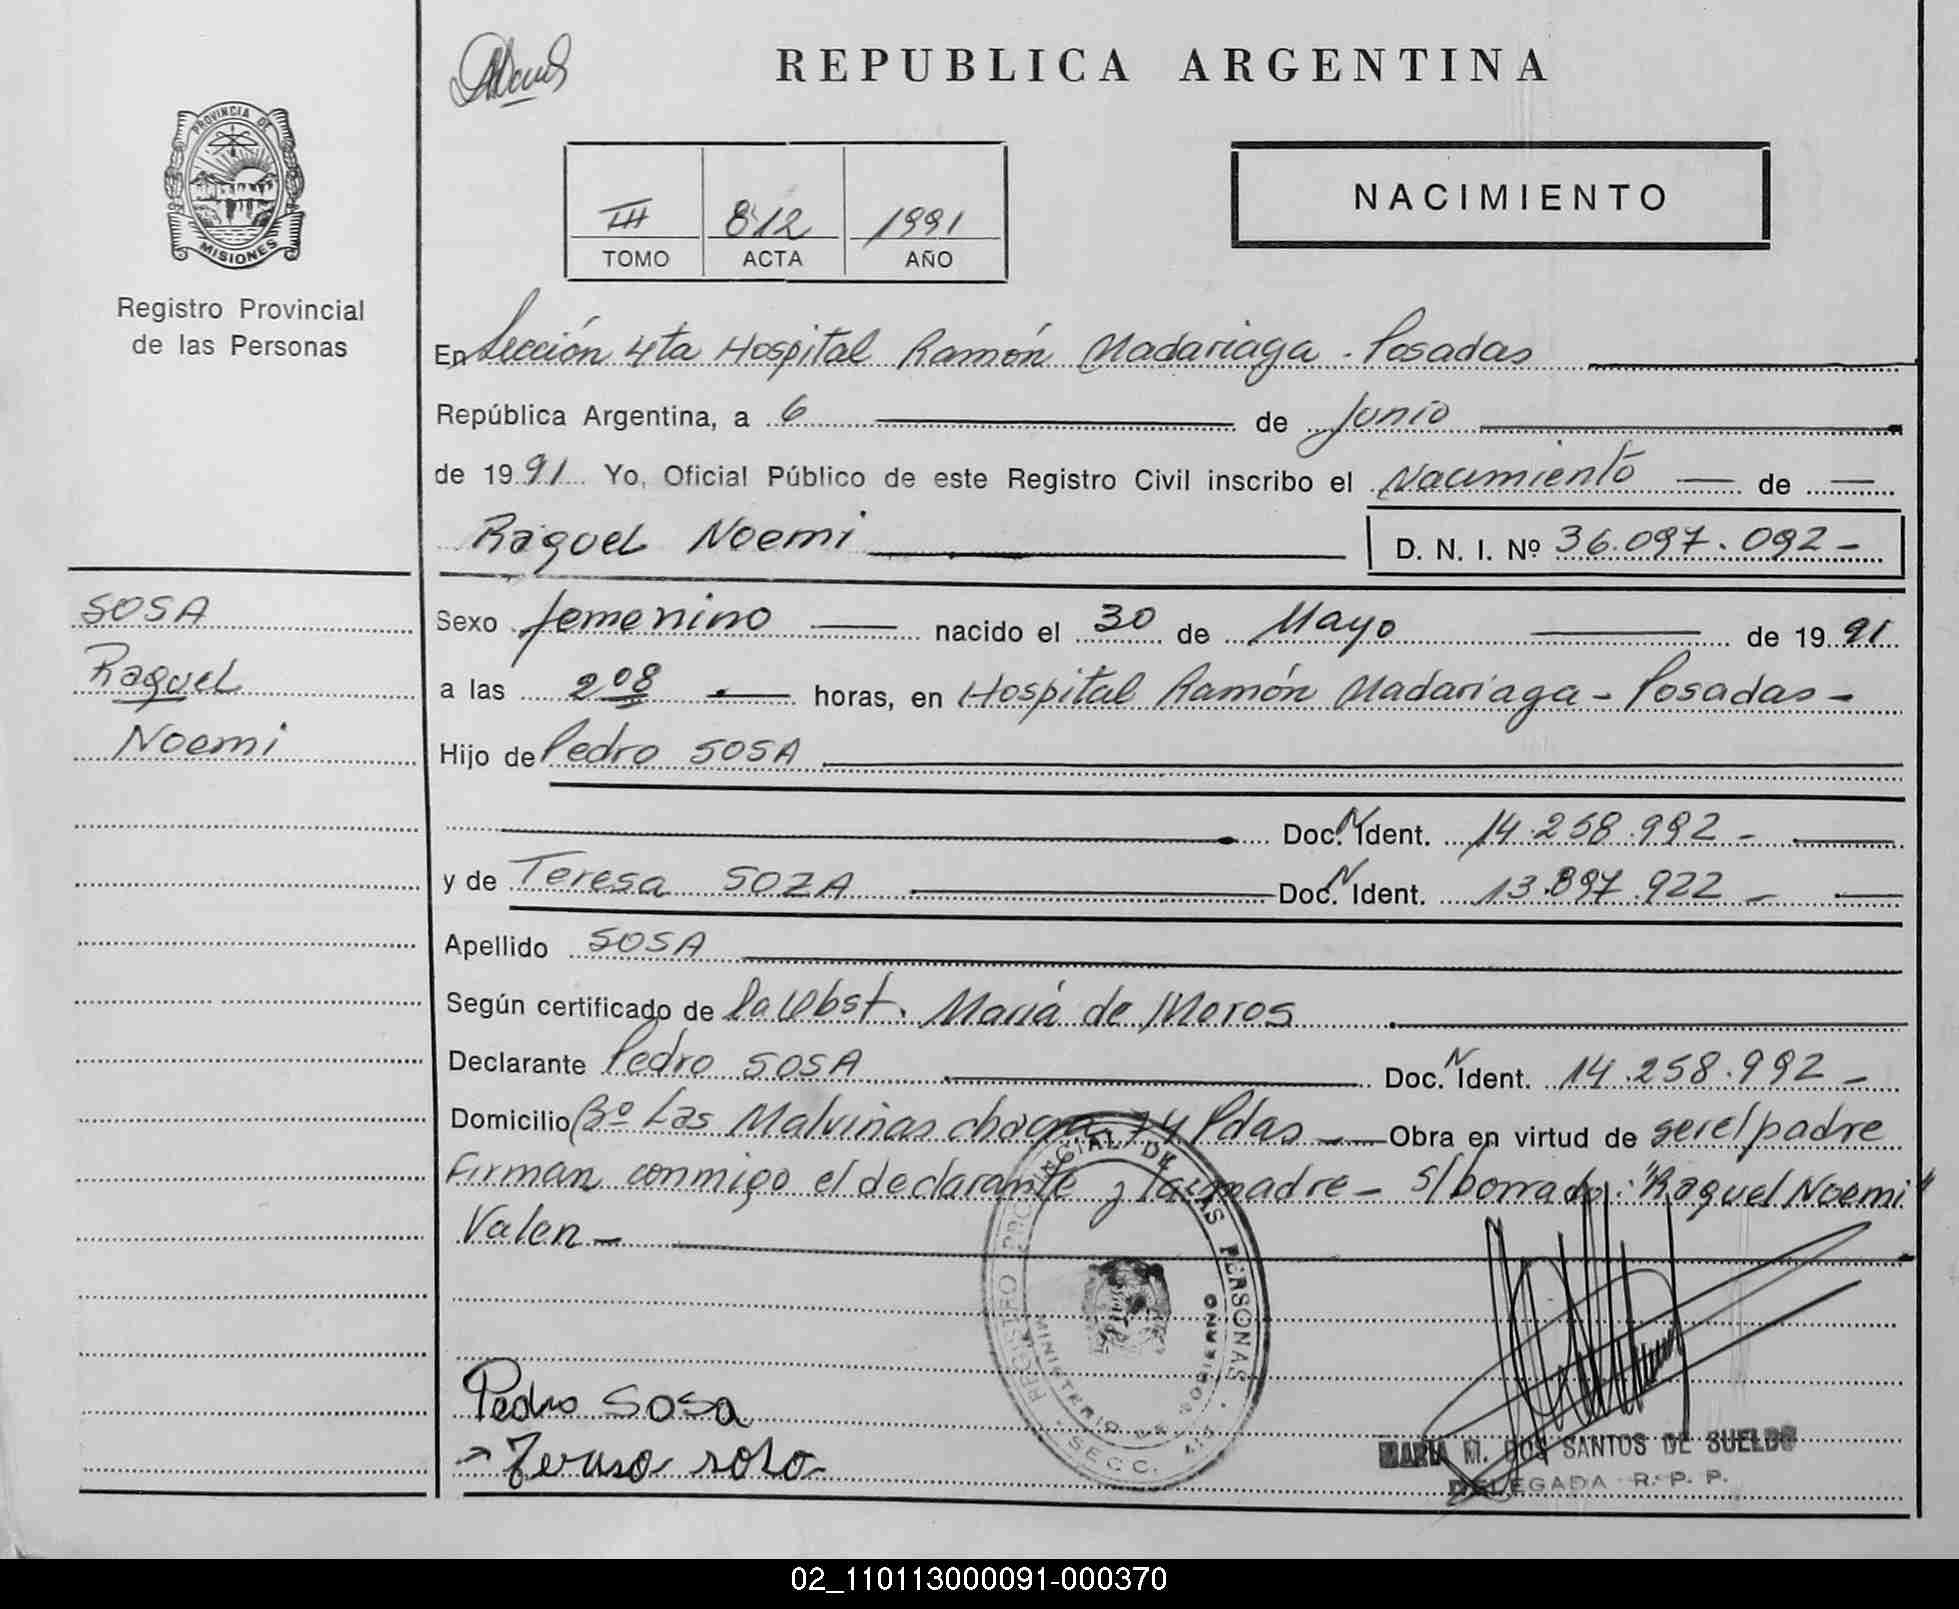 REPUBLICA ARGENTINA
PROVINCIA DE
MISIONES
Registro Provincial
de las Personas
III 812 1991
TOMO ACTA AÑO
NACIMIENTO
En Sección 4ta Hospital Ramón Madariaga - Posadas
República Argentina, a 6 de Junio
de 1991 Yo, Oficial Público de este Registro Civil inscribo el Nacimiento de
Raquel Noemi
D. N. I. Nº 36.097.092 -
SOSA
Raquel
Noemi
Sexo femenino nacido el 30 de Mayo de 1991
a las 2 08 horas, en Hospital Ramón Madariaga - Posadas -
Hijo de Pedro SOSA
Doc. N Ident. 14.258.992 -
y de Teresa SOZA Doc. N Ident. 13.897.922 -
Apellido SOSA
Según certificado de la Obst. María de Moros
Declarante Pedro SOSA Doc. N Ident. 14.258.992 -
Domicilio Bº Las Malvinas chacra 74 Pdas - Obra en virtud de ser el padre
Firman conmigo el declarante y la madre - S/borrado: "Raquel Noemi"
Valen -
REGISTRO PROVINCIAL DE LAS PERSONAS
MINISTERIO DE GOBIERNO
SECC. 4ta
Pedro Sosa
Teresa soza
MARIA M. DOS SANTOS DE SUELDO
DELEGADA R. P. P.
02_110113000091-000370